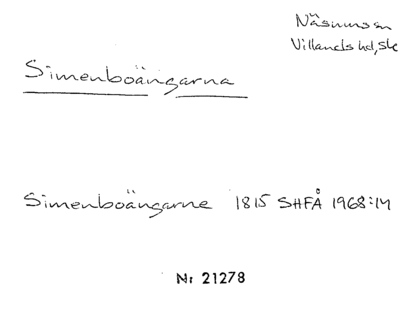 Näsums sn
Villands hd, Sk
Simenboängarna
Simenboängarne 1815 SHFÅ 1968:14
Nr 21278